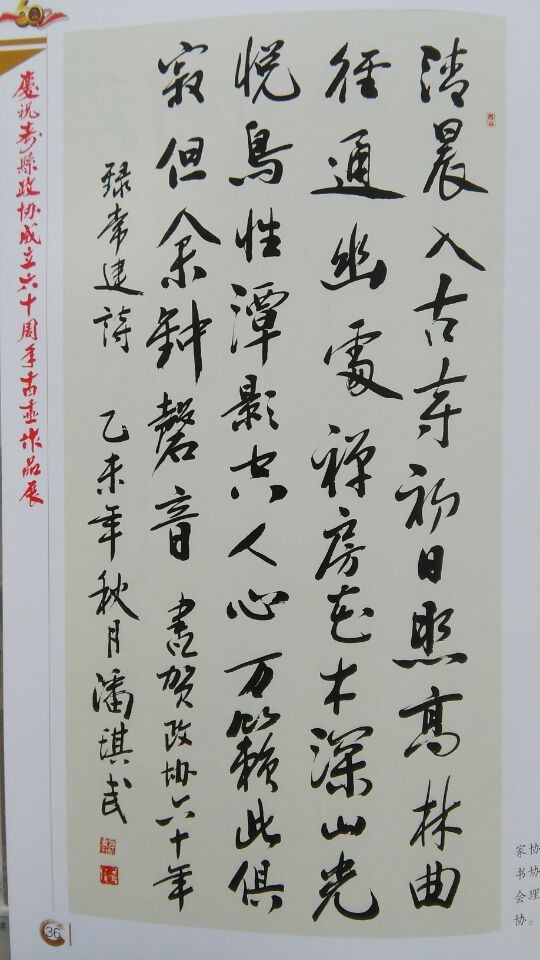 清晨入古寺初日照高林曲
徑通幽處禅房花木深山光
悦鳥性潭影空人心万籟此俱
寂但余鈡磬音 書贺政协六十年
録常建詩 乙未年秋月潘琪武
慶祝寿縣政协成立六十周年書画作品展
家协
书协
会理
协。
36